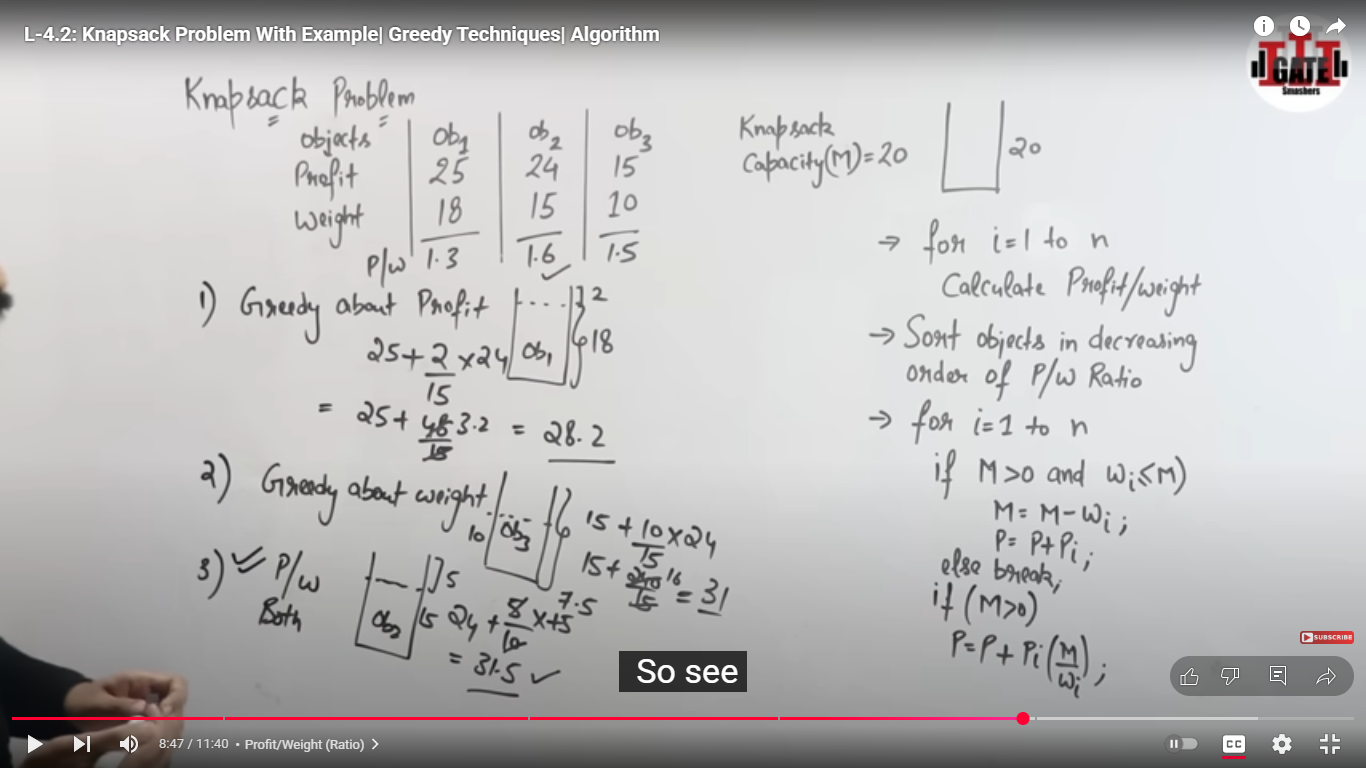 L-4.2: Knapsack Problem With Example| Greedy Techniques| Algorithm
GATE
Smashers
Knapsack Problem
Objects Ob1 Ob2 Ob3
Profit 25 24 15
Weight 18 15 10
P/W 1.3 1.6 1.5
Knapsack
Capacity(M)=20
20
1) Greedy about Profit
2
18
Ob1
25+2/15×24
= 25+48/15 3.2 = 28.2
2) Greedy about weight
10
Ob3
15+10/15×24
15+240/15 16 = 31
3) ✓ P/W
Both
5
15
Ob2
24+5/10×15 7.5
= 31.5 ✓
→ for i=1 to n
Calculate Profit/weight
→ Sort objects in decreasing
order of P/W Ratio
→ for i=1 to n
if M>0 and Wi≤M)
M=M-Wi;
P=P+Pi;
else break;
if (M>0)
P=P+Pi(M/Wi);
So see
SUBSCRIBE
8:47 / 11:40 • Profit/Weight (Ratio) >
CC